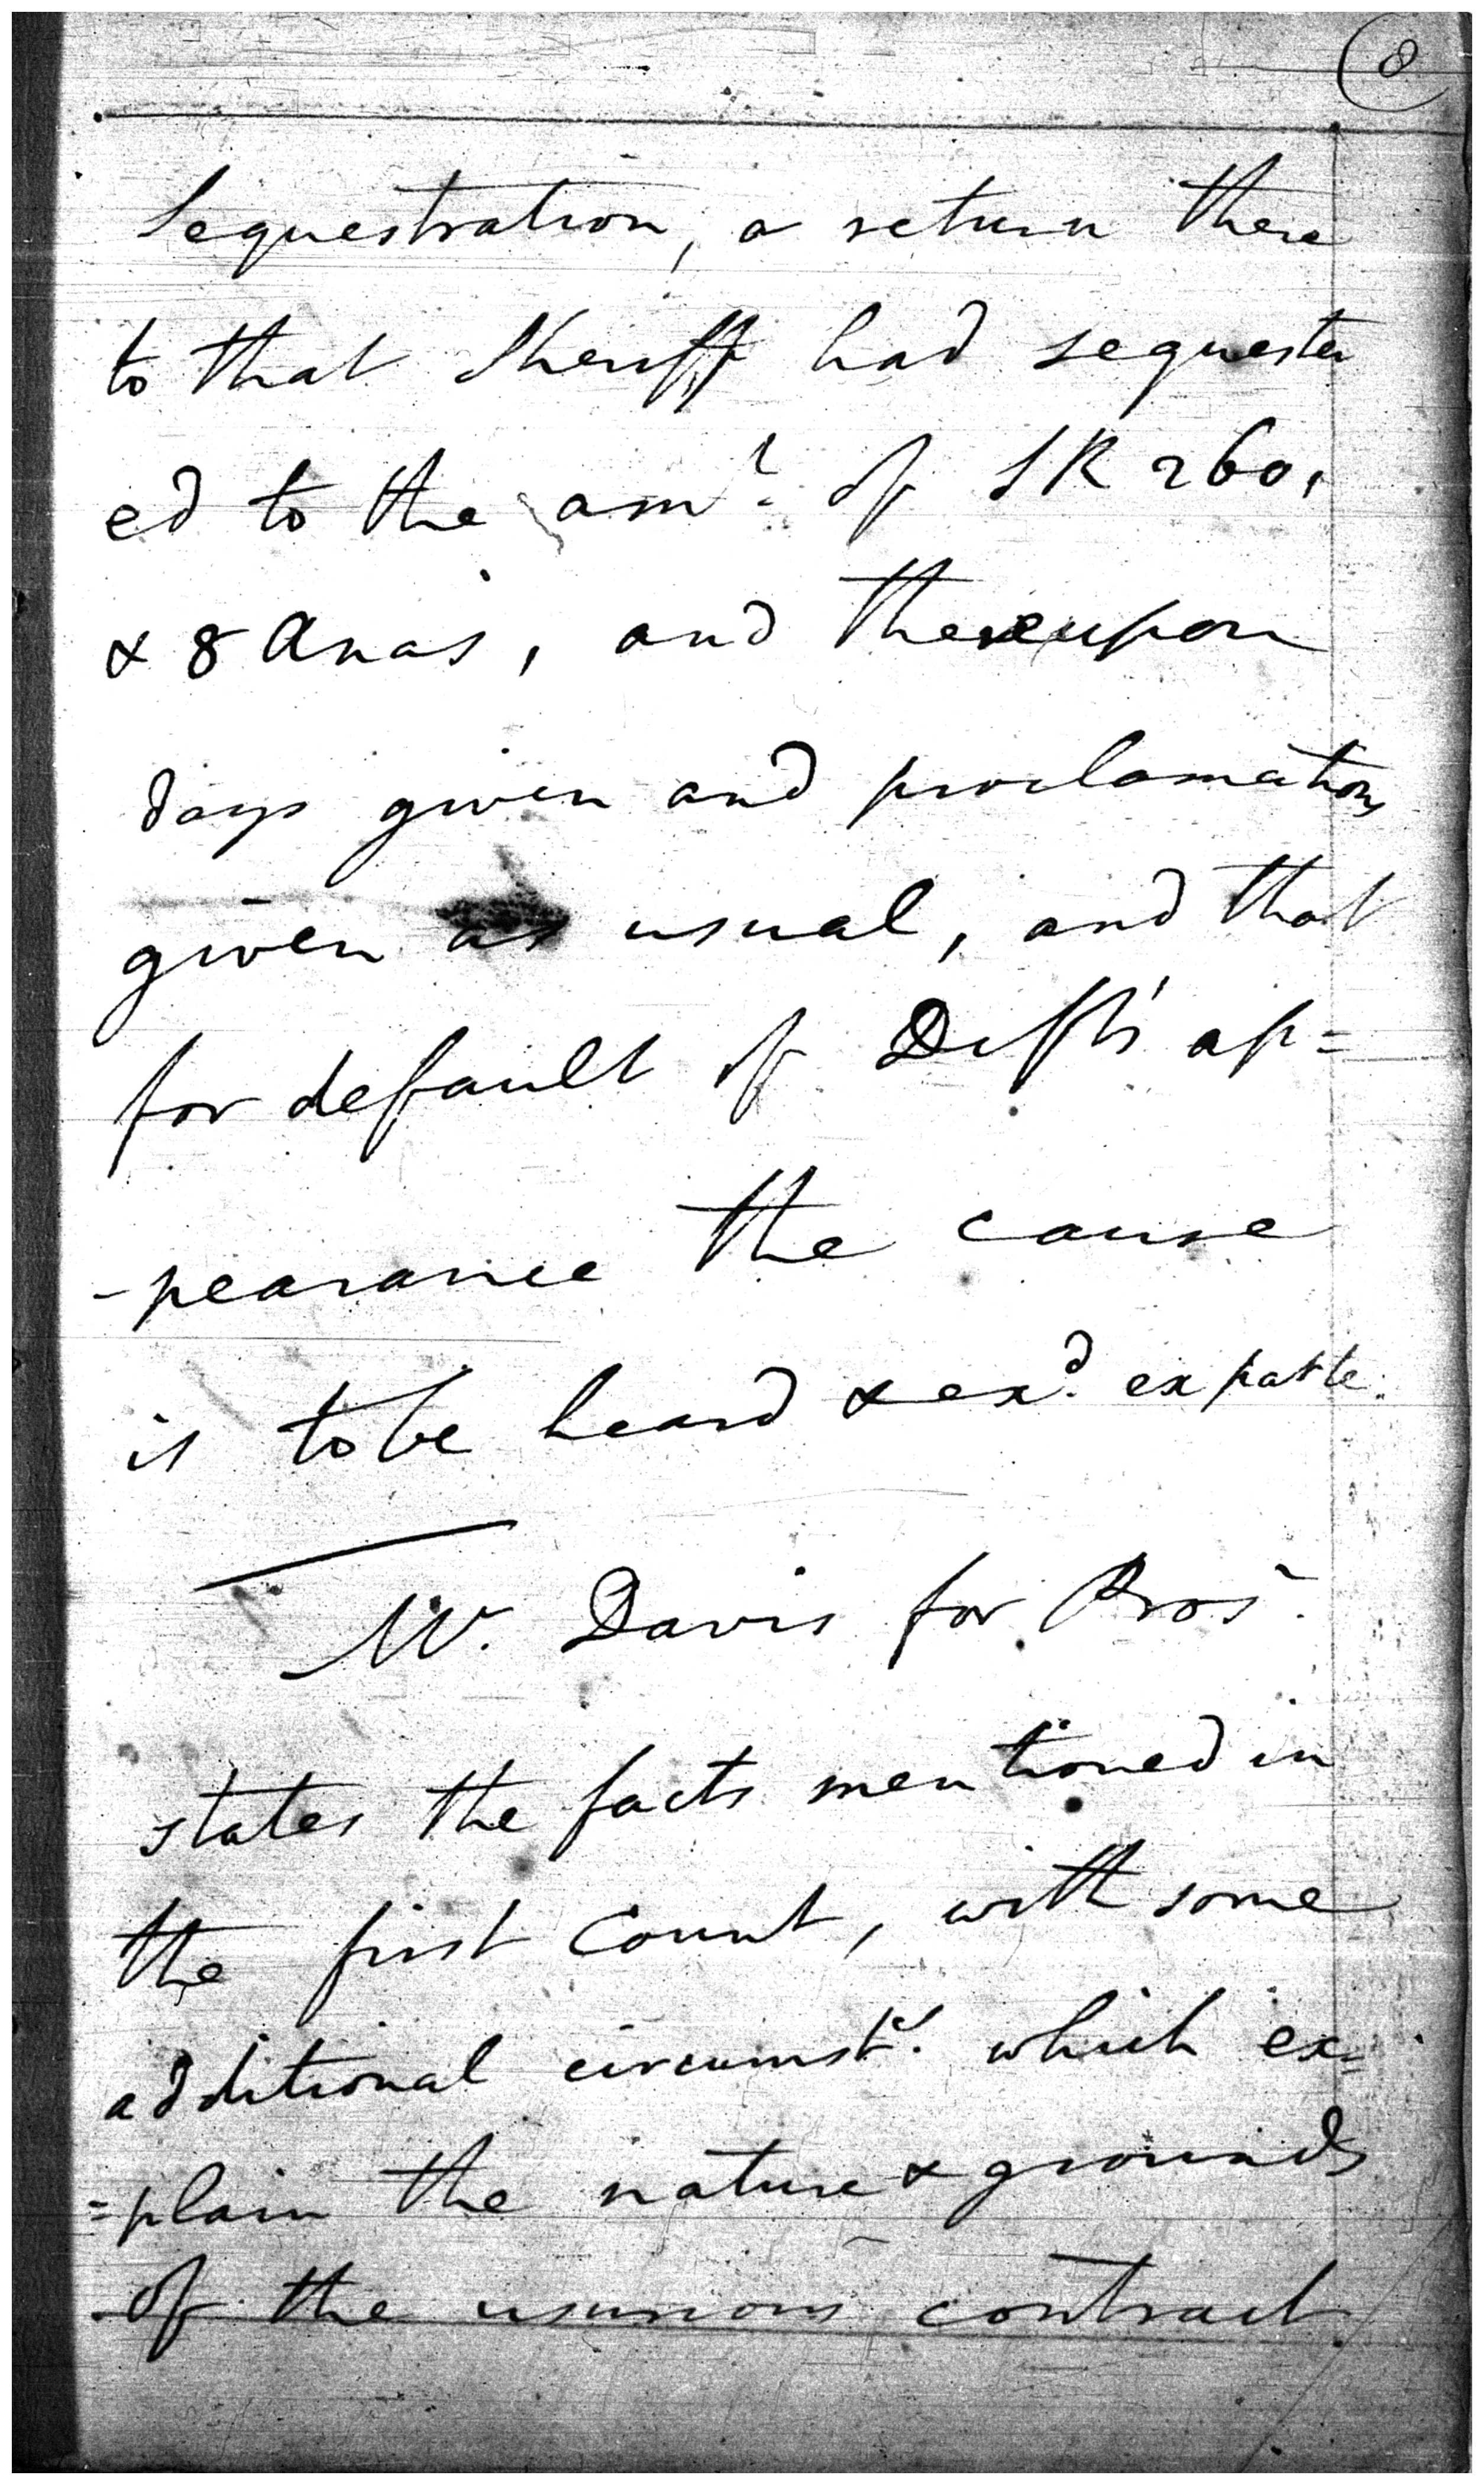 8
Sequestration, a return there
to that Sheriff had sequester
ed to the amt. of SR 260,
& 8 Anas, and thereupon
days given and proclamations
given as usual, and that
for default of Defts' ap=
-pearance the cause
is to be heard & exd. ex parte.
Mr. Davis for Pros.
states the facts mentioned in
the first Count, with some
additional circumsts. which ex=
=plain the nature & grounds
of the usurious contract.